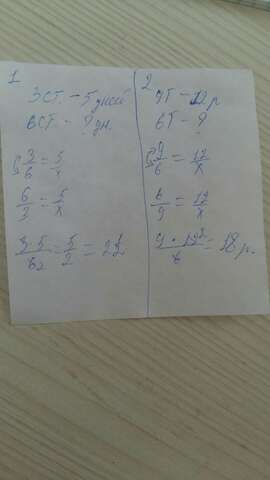 1
3 СТ. – 5 дней
6 СТ. – ? дн.
3/6 = 5/x
6/3 = 5/x
3·5/6₂ = 5/2 = 2 1/2
2
9Т – 12 р
6Т – ?
9/6 = 12/x
6/9 = 12/x
9 · 12²/6 = 18 р.